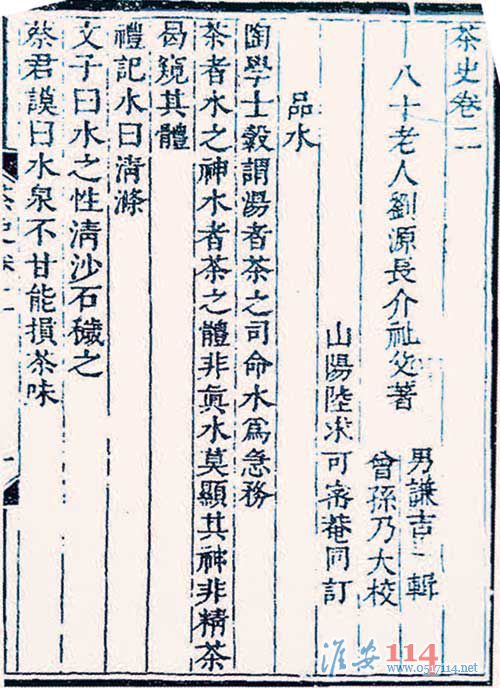 茶史卷二
八十老人劉源長介祉父著
男謙吉 輯
曾孫乃大校
山陽陸求可密菴同訂
品水
陶學士穀謂湯者茶之司命水爲急務
茶者水之神水者茶之體非眞水莫顯其神非精茶
曷窺其體
禮記水曰淸滌
文子曰水之性淸沙石穢之
蔡君謨曰水泉不甘能損茶味
淮安114
www.0517114.net